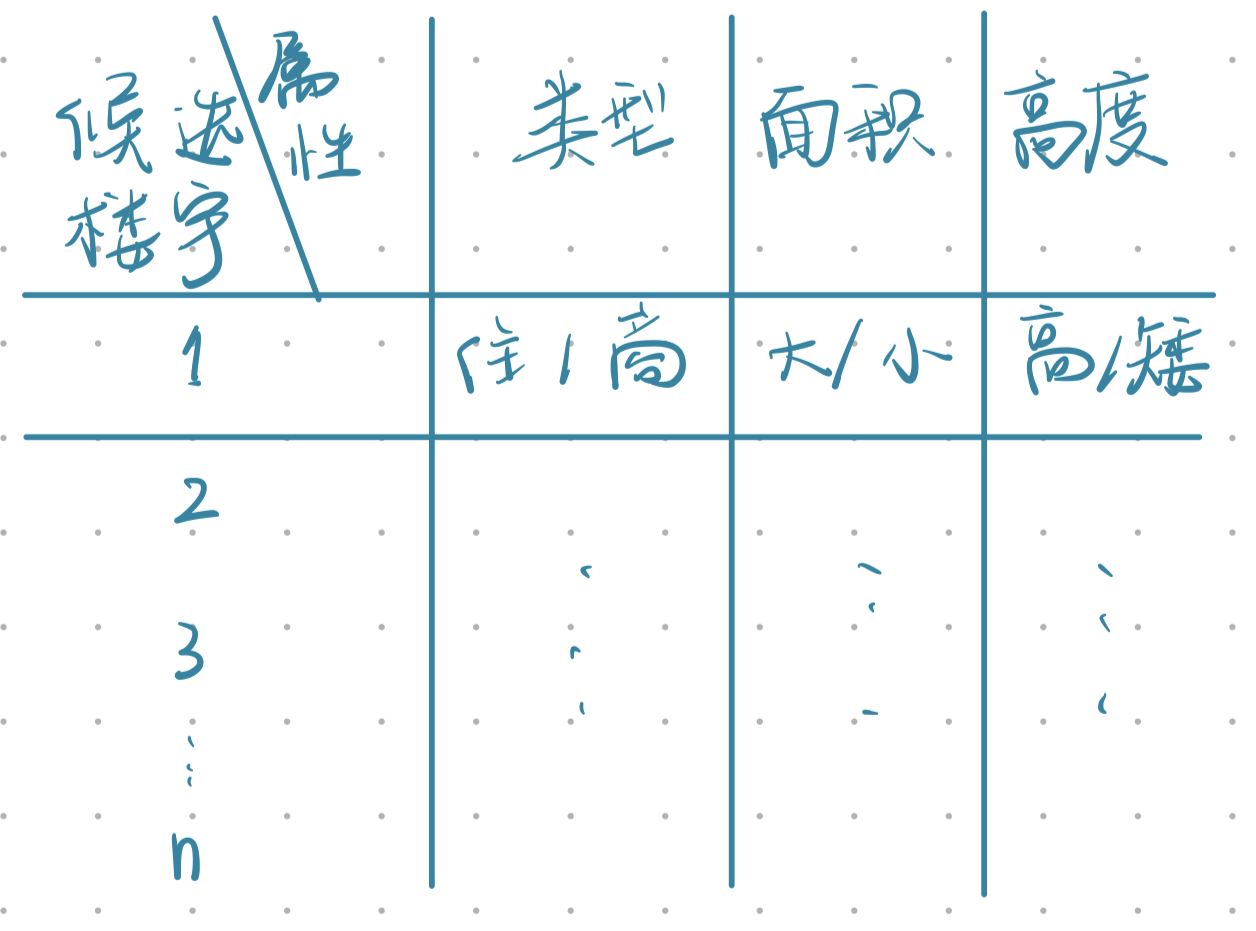 候选楼宇 属性 类型 面积 高度
1 住/商 大/小 高/矮
2
3
⋮
n